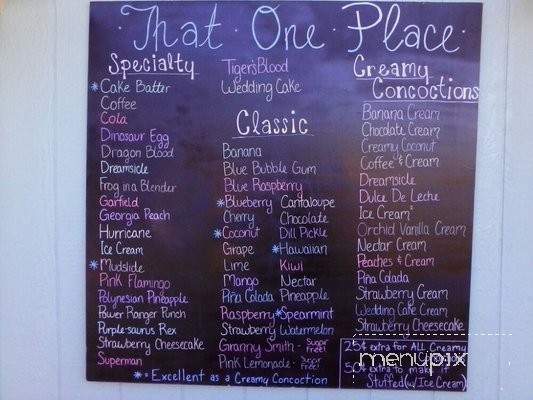 ·That·One·Place·
Specialty
*Cake Batter
Coffee
Cola
Dinosaur Egg
Dragon Blood
Dreamsicle
Frog in a Blender
Garfield
Georgia Peach
Hurricane
Ice Cream
*Mudslide
Pink Flamingo
Polynesian Pineapple
Power Ranger Punch
Purple-saurus Rex
Strawberry Cheesecake
Superman
Tiger's Blood
Wedding Cake
Classic
Banana
Blue Bubble Gum
Blue Raspberry
*Blueberry Cantaloupe
Cherry Chocolate
*Coconut Dill Pickle
Grape *Hawaiian
Lime Kiwi
Mango Nectar
Piña Colada Pineapple
Raspberry *Spearmint
Strawberry Watermelon
Granny Smith - Sugar Free!
Pink Lemonade - Sugar Free!
Creamy
Concoctions
Banana Cream
Chocolate Cream
Creamy Coconut
Coffee & Cream
Dreamsicle
Dulce De Leche
Ice Cream²
Orchid Vanilla Cream
Nectar Cream
Peaches & Cream
Piña Colada
Strawberry Cream
Wedding Cake Cream
Strawberry Cheesecake
* = Excellent as a Creamy Concoction
25¢ extra for ALL Creamy
50¢ extra to make it
Stuffed (w/ Ice Cream)
menupix